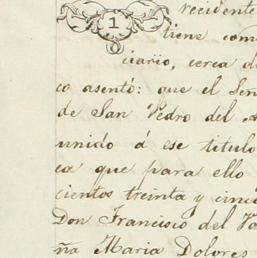 recidente
1
tiene com
ciario, cerca d
co asentó: que el Sen
de San Pedro del A
unido á ese titulo
ca que para ello
cientos treinta y cinc
Don Francisco del Va
ña Maria Dolores